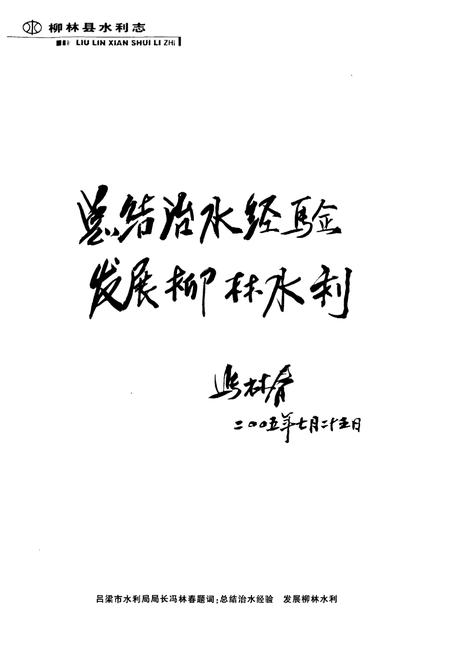 柳林县水利志
LIU LIN XIAN SHUI LI ZHI
总结治水经验
发展柳林水利
冯林春
二〇〇五年七月二十五日
吕梁市水利局局长冯林春题词:总结治水经验 发展柳林水利